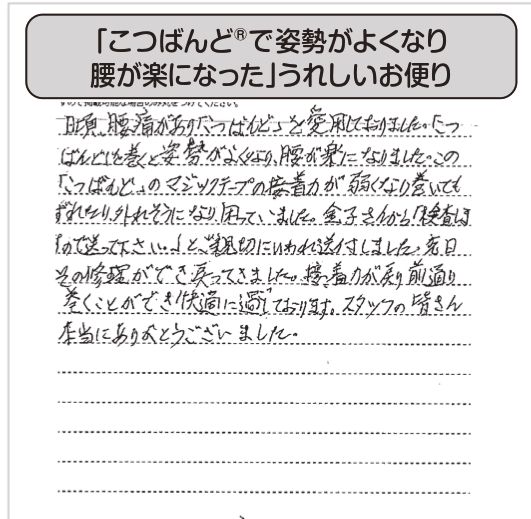 「こつばんど®で姿勢がよくなり
腰が楽になった」うれしいお便り
日頃、腰痛があり「こつばんど」を愛用しておりました。「こつ
ばんど」を巻くと姿勢がよくなり、腰が楽になりました。この
「こつばんど」のマジックテープの接着力が弱くなり巻いても
ずれたり、外れそうになり、困っていました。金子さんから「検査しま
すので送って下さい。」とご親切にいわれ送付しました。先日
その修理ができ戻ってきました。接着力が戻り前通り
巻くことができ快適に過しております。スタッフの皆さん
本当にありがとうございました。